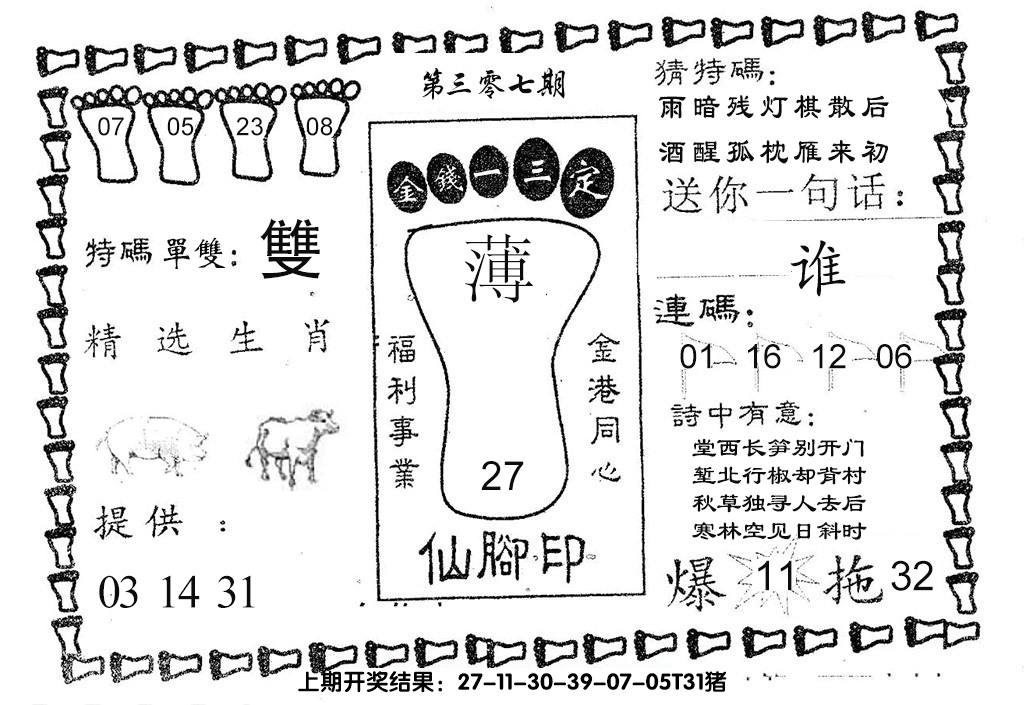 第三零七期
07 05 23 08
特碼單雙：雙
精选生肖
提供：
03 14 31
金錢一三定
薄
福利事業
金港同心
27
仙腳印
猜特碼：
雨暗残灯棋散后
酒醒孤枕雁来初
送你一句话：
谁
連碼：
01 16 12 06
詩中有意：
堂西长笋别开门
堑北行椒却背村
秋草独寻人去后
寒林空见日斜时
爆 11 拖 32
上期开奖结果：27-11-30-39-07-05T31猪